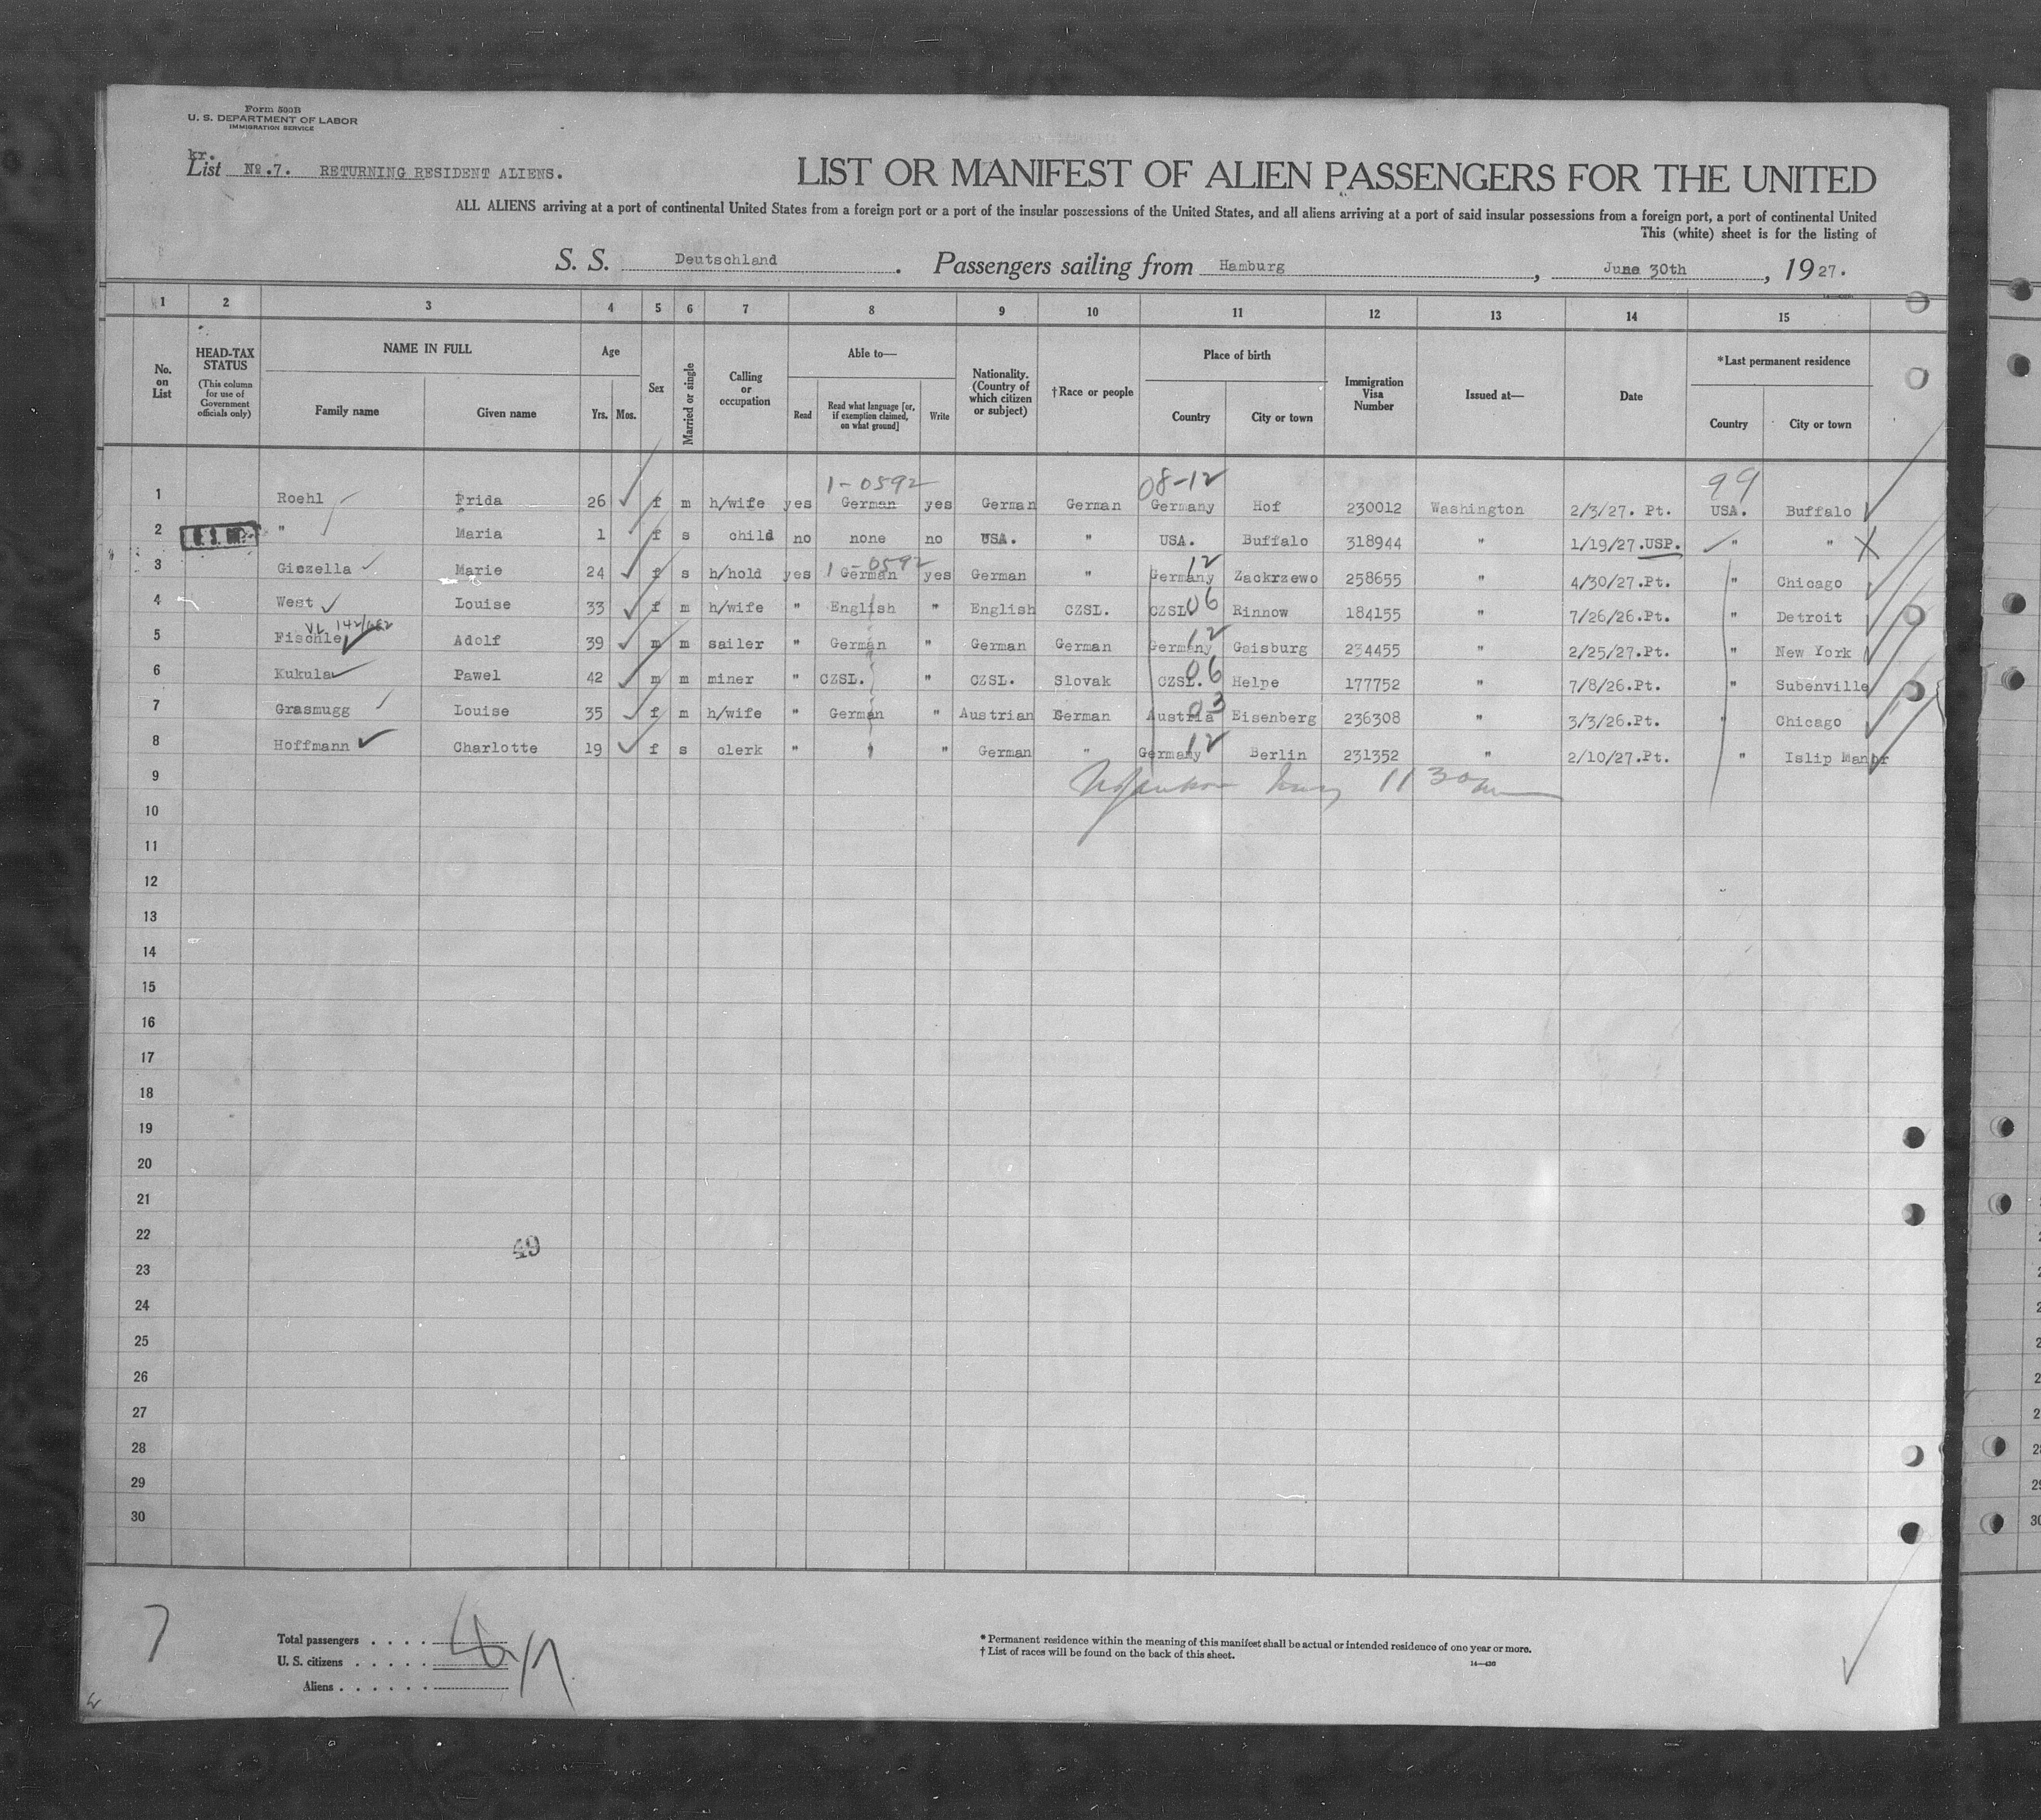 Form 500B
U. S. DEPARTMENT OF LABOR
IMMIGRATION SERVICE
kr.
List No.7. RETURNING RESIDENT ALIENS.
LIST OR MANIFEST OF ALIEN PASSENGERS FOR THE UNITED
ALL ALIENS arriving at a port of continental United States from a foreign port or a port of the insular possessions of the United States, and all aliens arriving at a port of said insular possessions from a foreign port, a port of continental United
This (white) sheet is for the listing of
S. S. Deutschland. Passengers sailing from Hamburg, June 30th, 1927.
1 2 3 4 5 6 7 8 9 10 11 12 13 14 15
No. on List
HEAD-TAX STATUS (This column for use of Government officials only)
NAME IN FULL
Family name Given name
Age
Yrs. Mos.
Sex
Married or single
Calling or occupation
Able to—
Read Read what language [or, if exemption claimed, on what ground] Write
Nationality. (Country of which citizen or subject)
†Race or people
Place of birth
Country City or town
Immigration Visa Number
Issued at—
Date
*Last permanent residence
Country City or town
1-0592 08-12 99
1 Roehl Frida 26 f m h/wife yes German yes German German Germany Hof 230012 Washington 2/3/27. Pt. USA. Buffalo
2 " Maria 1 f s child no none no USA. " USA. Buffalo 318944 " 1/19/27.USP. " " X
1-0592 12
3 Giezella Marie 24 f s h/hold yes German yes German " Germany Zackrzewo 258655 " 4/30/27.Pt. " Chicago
4 West Louise 33 f m h/wife " English " English CZSL. CZSL. 06 Rinnow 184155 " 7/26/26.Pt. " Detroit
VL 142/682 12
5 Fischle Adolf 39 m m sailer " German " German German Germany Gaisburg 234455 " 2/25/27.Pt. " New York
6 Kukula Pawel 42 m m miner " CZSL. " CZSL. Slovak CZSL. 06 Helpe 177752 " 7/8/26.Pt. " Subenville
7 Grasmugg Louise 35 f m h/wife " German " Austrian German Austria 03 Eisenberg 236308 " 3/3/26.Pt. " Chicago
8 Hoffmann Charlotte 19 f s clerk " " " German " Germany 12 Berlin 231352 " 2/10/27.Pt. " Islip Manor
9 11 30 am
10
11
12
13
14
15
16
17
18
19
20
21
22
49
23
24
25
26
27
28
29
30
7
Total passengers . . . .
U. S. citizens . . . . .
Aliens . . . . . .
* Permanent residence within the meaning of this manifest shall be actual or intended residence of one year or more.
† List of races will be found on the back of this sheet.
14—436